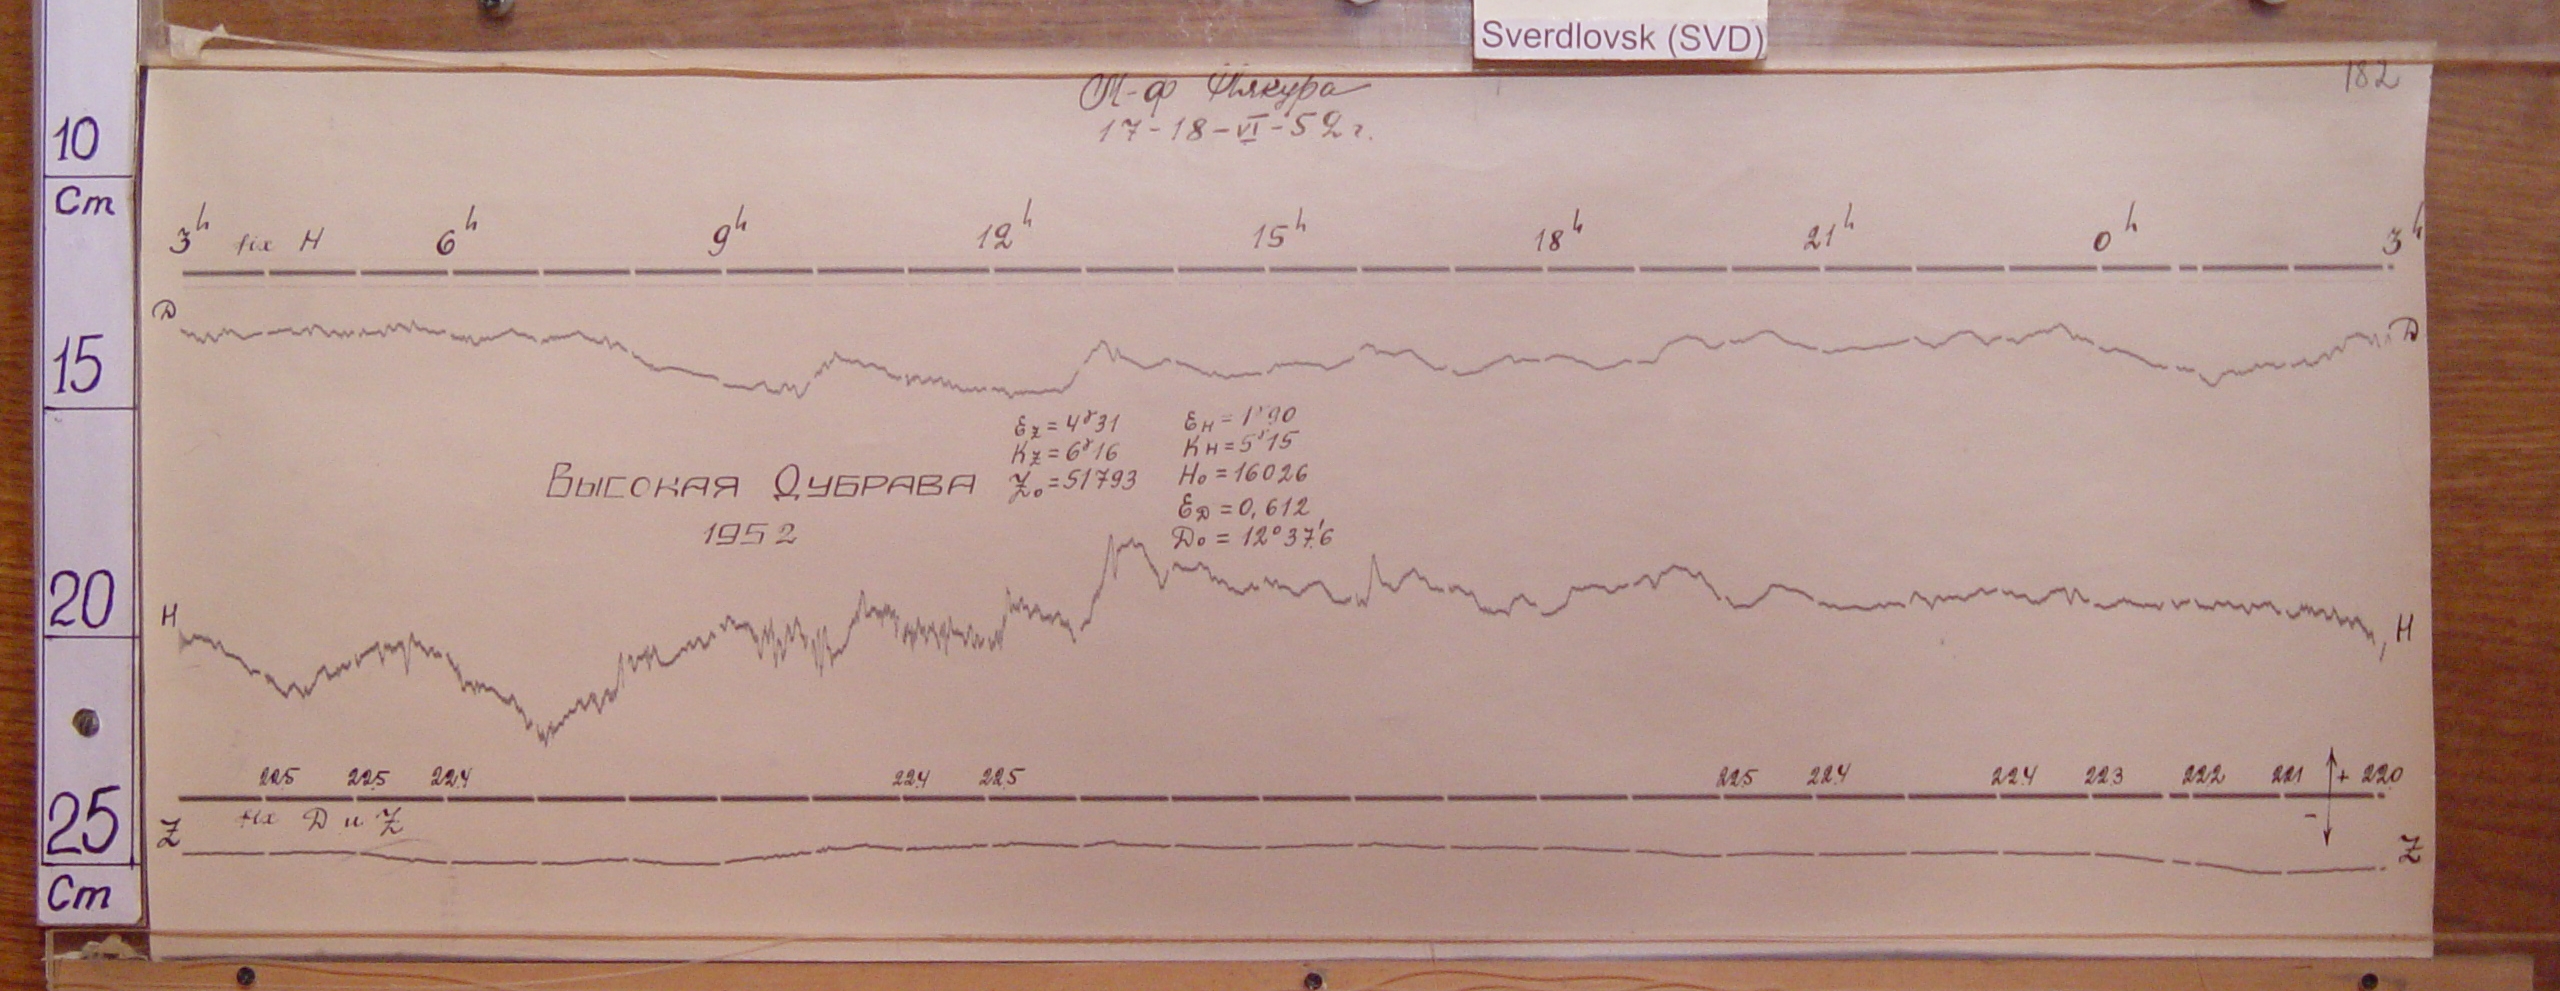 Sverdlovsk (SVD)
182
М-ф Якура
17-18-VI-52 г.
10
Cm
15
20
25
Cm
3h fix H 6h 9h 12h 15h 18h 21h 0h 3h
D D
Ez = 4γ31
Kz = 6γ16
Z₀ = 51793
EH = 1γ90
KH = 5γ15
H₀ = 16026
ED = 0,612
D₀ = 12°37'6
ВЫСОКАЯ ДУБРАВА
1952
H H
225 225 224 224 225 225 224 224 223 222 221 + 220
fix D и Z -
Z Z